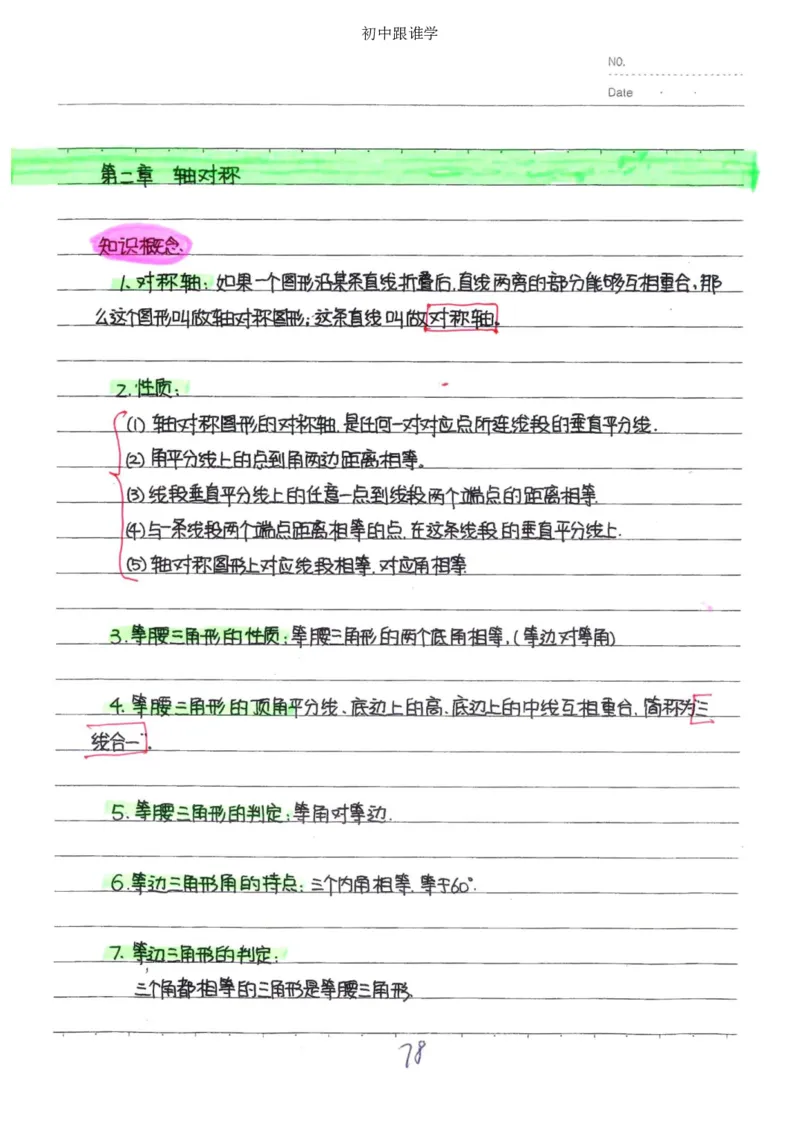 初中跟谁学
NO.
Date
第二章 轴对称
知识概念、
1、对称轴：如果一个图形沿某条直线折叠后，直线两旁的部分能够互相重合，那
么这个图形叫做轴对称图形；这条直线叫做对称轴。
2.性质：
(1) 轴对称图形的对称轴，是任何一对对应点所连线段的垂直平分线.
(2) 角平分线上的点到角两边距离相等。
(3) 线段垂直平分线上的任意一点到线段两个端点的距离相等.
(4) 与一条线段两个端点距离相等的点，在这条线段的垂直平分线上.
(5) 轴对称图形上对应线段相等，对应角相等.
3.等腰三角形的性质：等腰三角形的两个底角相等，(等边对等角)
4. 等腰三角形的顶角平分线、底边上的高、底边上的中线互相重合，简称为"三
线合一"。
5.等腰三角形的判定：等角对等边.
6.等边三角形角的特点：三个内角相等，等于60°.
7. 等边三角形的判定：
三个角都相等的三角形是等腰三角形.
78